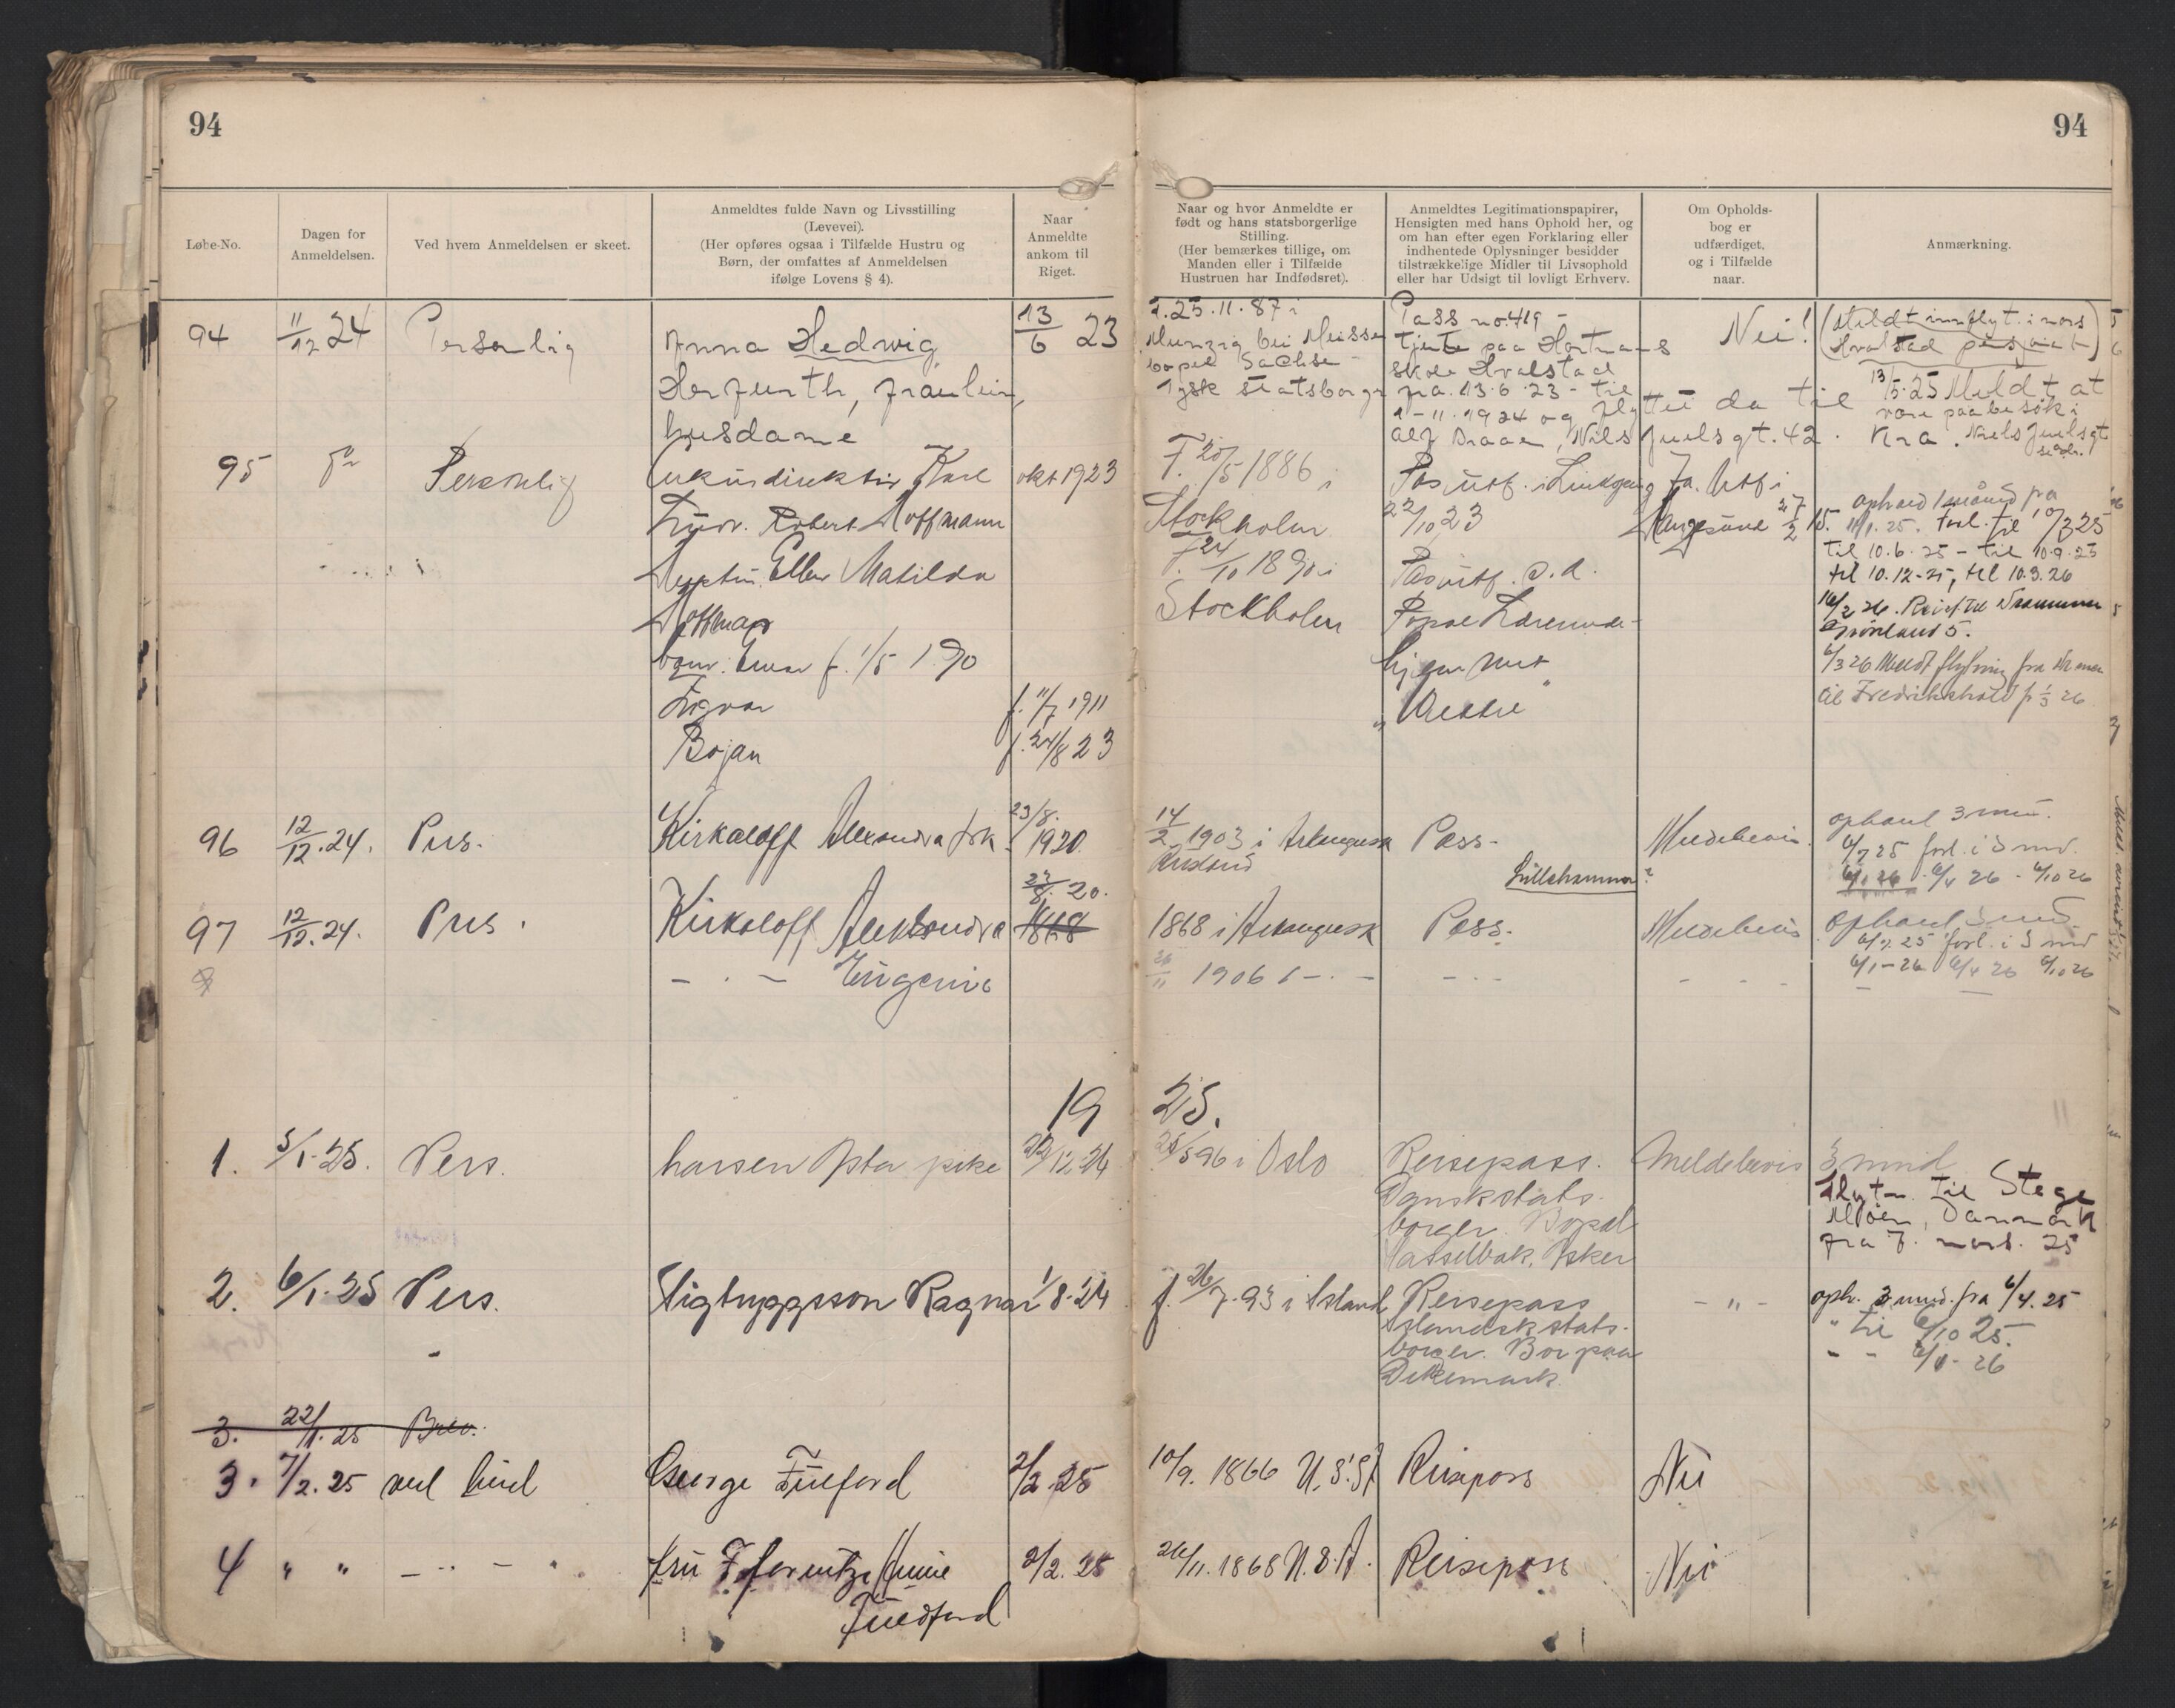 94
94
Løbe-No.
Dagen for
Anmeldelsen.
Ved hvem Anmeldelsen er skeet.
Anmeldtes fulde Navn og Livsstilling
(Levevei).
(Her opføres ogsaa i Tilfælde Hustru og
Børn, der omfattes af Anmeldelsen
ifølge Lovens § 4).
Naar
Anmeldte
ankom til
Riget.
Naar og hvor Anmeldte er
født og hans statsborgerlige
Stilling.
(Her bemærkes tillige, om
Manden eller i Tilfælde
Hustruen har Indfødsret).
Anmeldtes Legitimationspapirer,
Hensigten med hans Ophold her, og
om han efter egen Forklaring eller
indhentede Oplysninger besidder
tilstrækkelige Midler til Livsophold
eller har Udsigt til lovligt Erhverv.
Om Opholds-
bog er
udfærdiget,
og i Tilfælde
naar.
Anmærkning.
94 11/12 24 Personlig
Anna Hedwig
Herfurth, fraulein,
husdame
13/6 23
f. 25.11.87 i
Munzig bei Meissen
bopel Sachse
Tysk statsborger
Pass no. 419 -
Tjente paa Hartmans
skole Hvalstad
fra 13.6.23 - til
1-11.1924 og flyttet da til
Alf Braae, Nils Juelsgt. 42.
Nei!
(Meldt innflyt. i nors
Hvalstad pensjonat)
13/5.25 Meldt at
vare paa besøk i
Kra. Niels Juelsgt
95 Personlig
Karl
Ludv. Robert Hoffmann
okt 1923
F. 20/5 1886 i
Stockholm
Pas utf. i
22/10 23
Ja. Utf i
27/2 15.
Ellen Matilda
Hoffman
F. 24/10 1890 i
Stockholm
Pas utf. s. d.
ophold 1 måned fra
11/1.25. forl. til 10/3 25
til 10.6.25 - til 10.9.25
til 10.12-25, til 10.3.26
16/2 26. Reist til Drammen
Grønland 5.
6/3 26 Meldt flytning fra
til Fredrikshald fr 1/3 26
barn: Einar f. 1/5 190
Ingvar f. 11/7 1911
Bojan f. 24/8 23
hjem med
96 12/12.24. Pers.
Kirkoloff Alexandra frk
23/8. 1920.
14/2 1903 i Arkangelsk
Russland
Pass -
Lillehammer?
Meldebevis.
ophold 3 mnd.
6/7 25 forl. i 3 mnd.
6/1 26 - 6/4 26 - 6/10 26
97 12/12.24. Pers.
Kirkoloff Aleksandra
23/8. 20.
1868
1868 i Arkangelsk
Pass.
Meldebevis
Ophold 3 mnd.
6/7 25 forl. i 3 mnd
6/1-26 6/4 26 6/10 26
- . - Eugenie
26/11 1906 i - . -
- . -
- - -
1925.
1. 5/1.25. Pers.
Larsen Asta pike
22/12.24
25/5 96 i Oslo
Reisepass.
Dansk stats-
borger. Bopel
Hasselbak, Asker
Meldebevis
3 mnd
Flytn. til Stege
Møen, Danmark
fra 7. mars. 25
2. 6/1.25 Pers.
Sigtryggsson Ragnar
1/8.24
f. 26/7.93 i Island
Reisepass
Islandsk stats-
borger. Bor paa
Dikemark.
- " -
oph. 3 mnd. fra 6/4.25
" til 6/10 25.
- - 6/1-26
3. 22/1.25 Brev.
3. 7/2.25 ved
George Fulford
2/2.25
10/9. 1866 U.S.A
Reisepass
Nei
4 " " - " - "
fru Annie
Fuldford
2/2.25
26/11.1868 U.S.A.
Reisepass
Nei